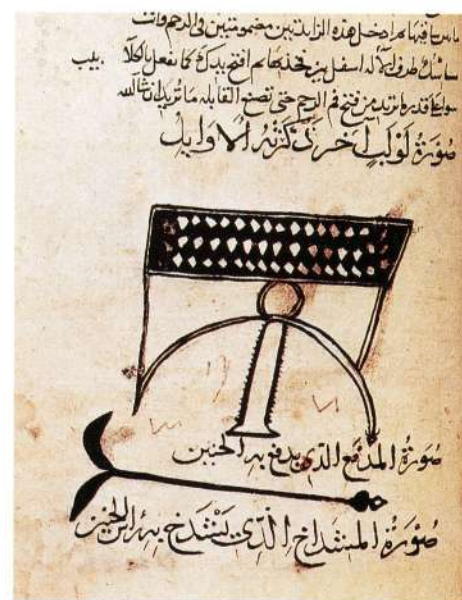 ثم ادخل هذه الزايدتين مضمومتين في الرحم وانت
ماسك طرف الآله اسفل بين فخذيها ثم افتح يديك كما تفعل بالكلاليب
سوا على قدر ما تريد من فتح فم الرحم حتى تصنع القابله ما تريد ان شا الله
صورة لولب آخر ذكرته الاوايل
صورة المدفع الذي يدفع به الجنين
صورة المشداخ الذي يشدخ به راس الجنين